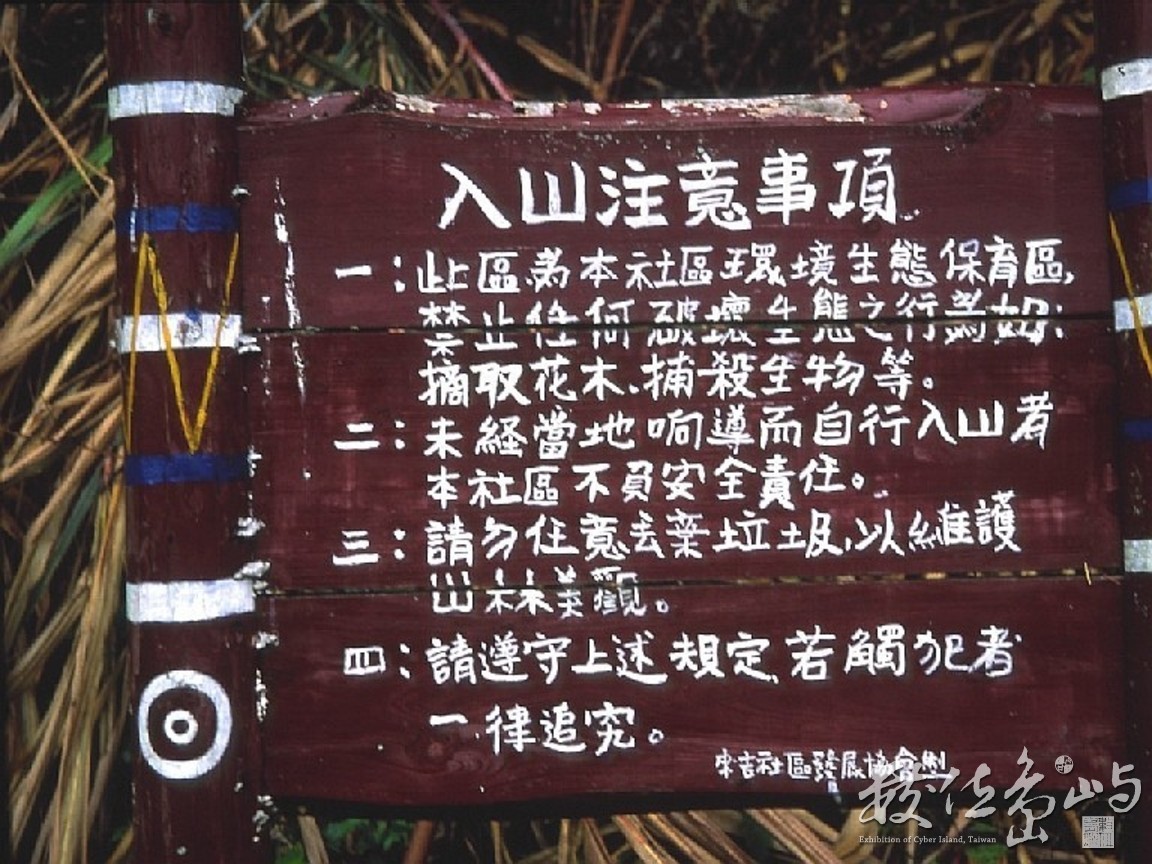 入山注意事項
一：此區為本社區環境生態保育區,
禁止任何破壞生態之行為如：
摘取花木、捕殺生物等。
二：未経當地响導而自行入山者
本社區不負安全責任。
三：請勿任意丟棄垃圾,以維護
山林美觀。
四：請遵守上述規定,若觸犯者
一律追究。
來吉社區發展協會製
數位島嶼
Exhibition of Cyber Island, Taiwan